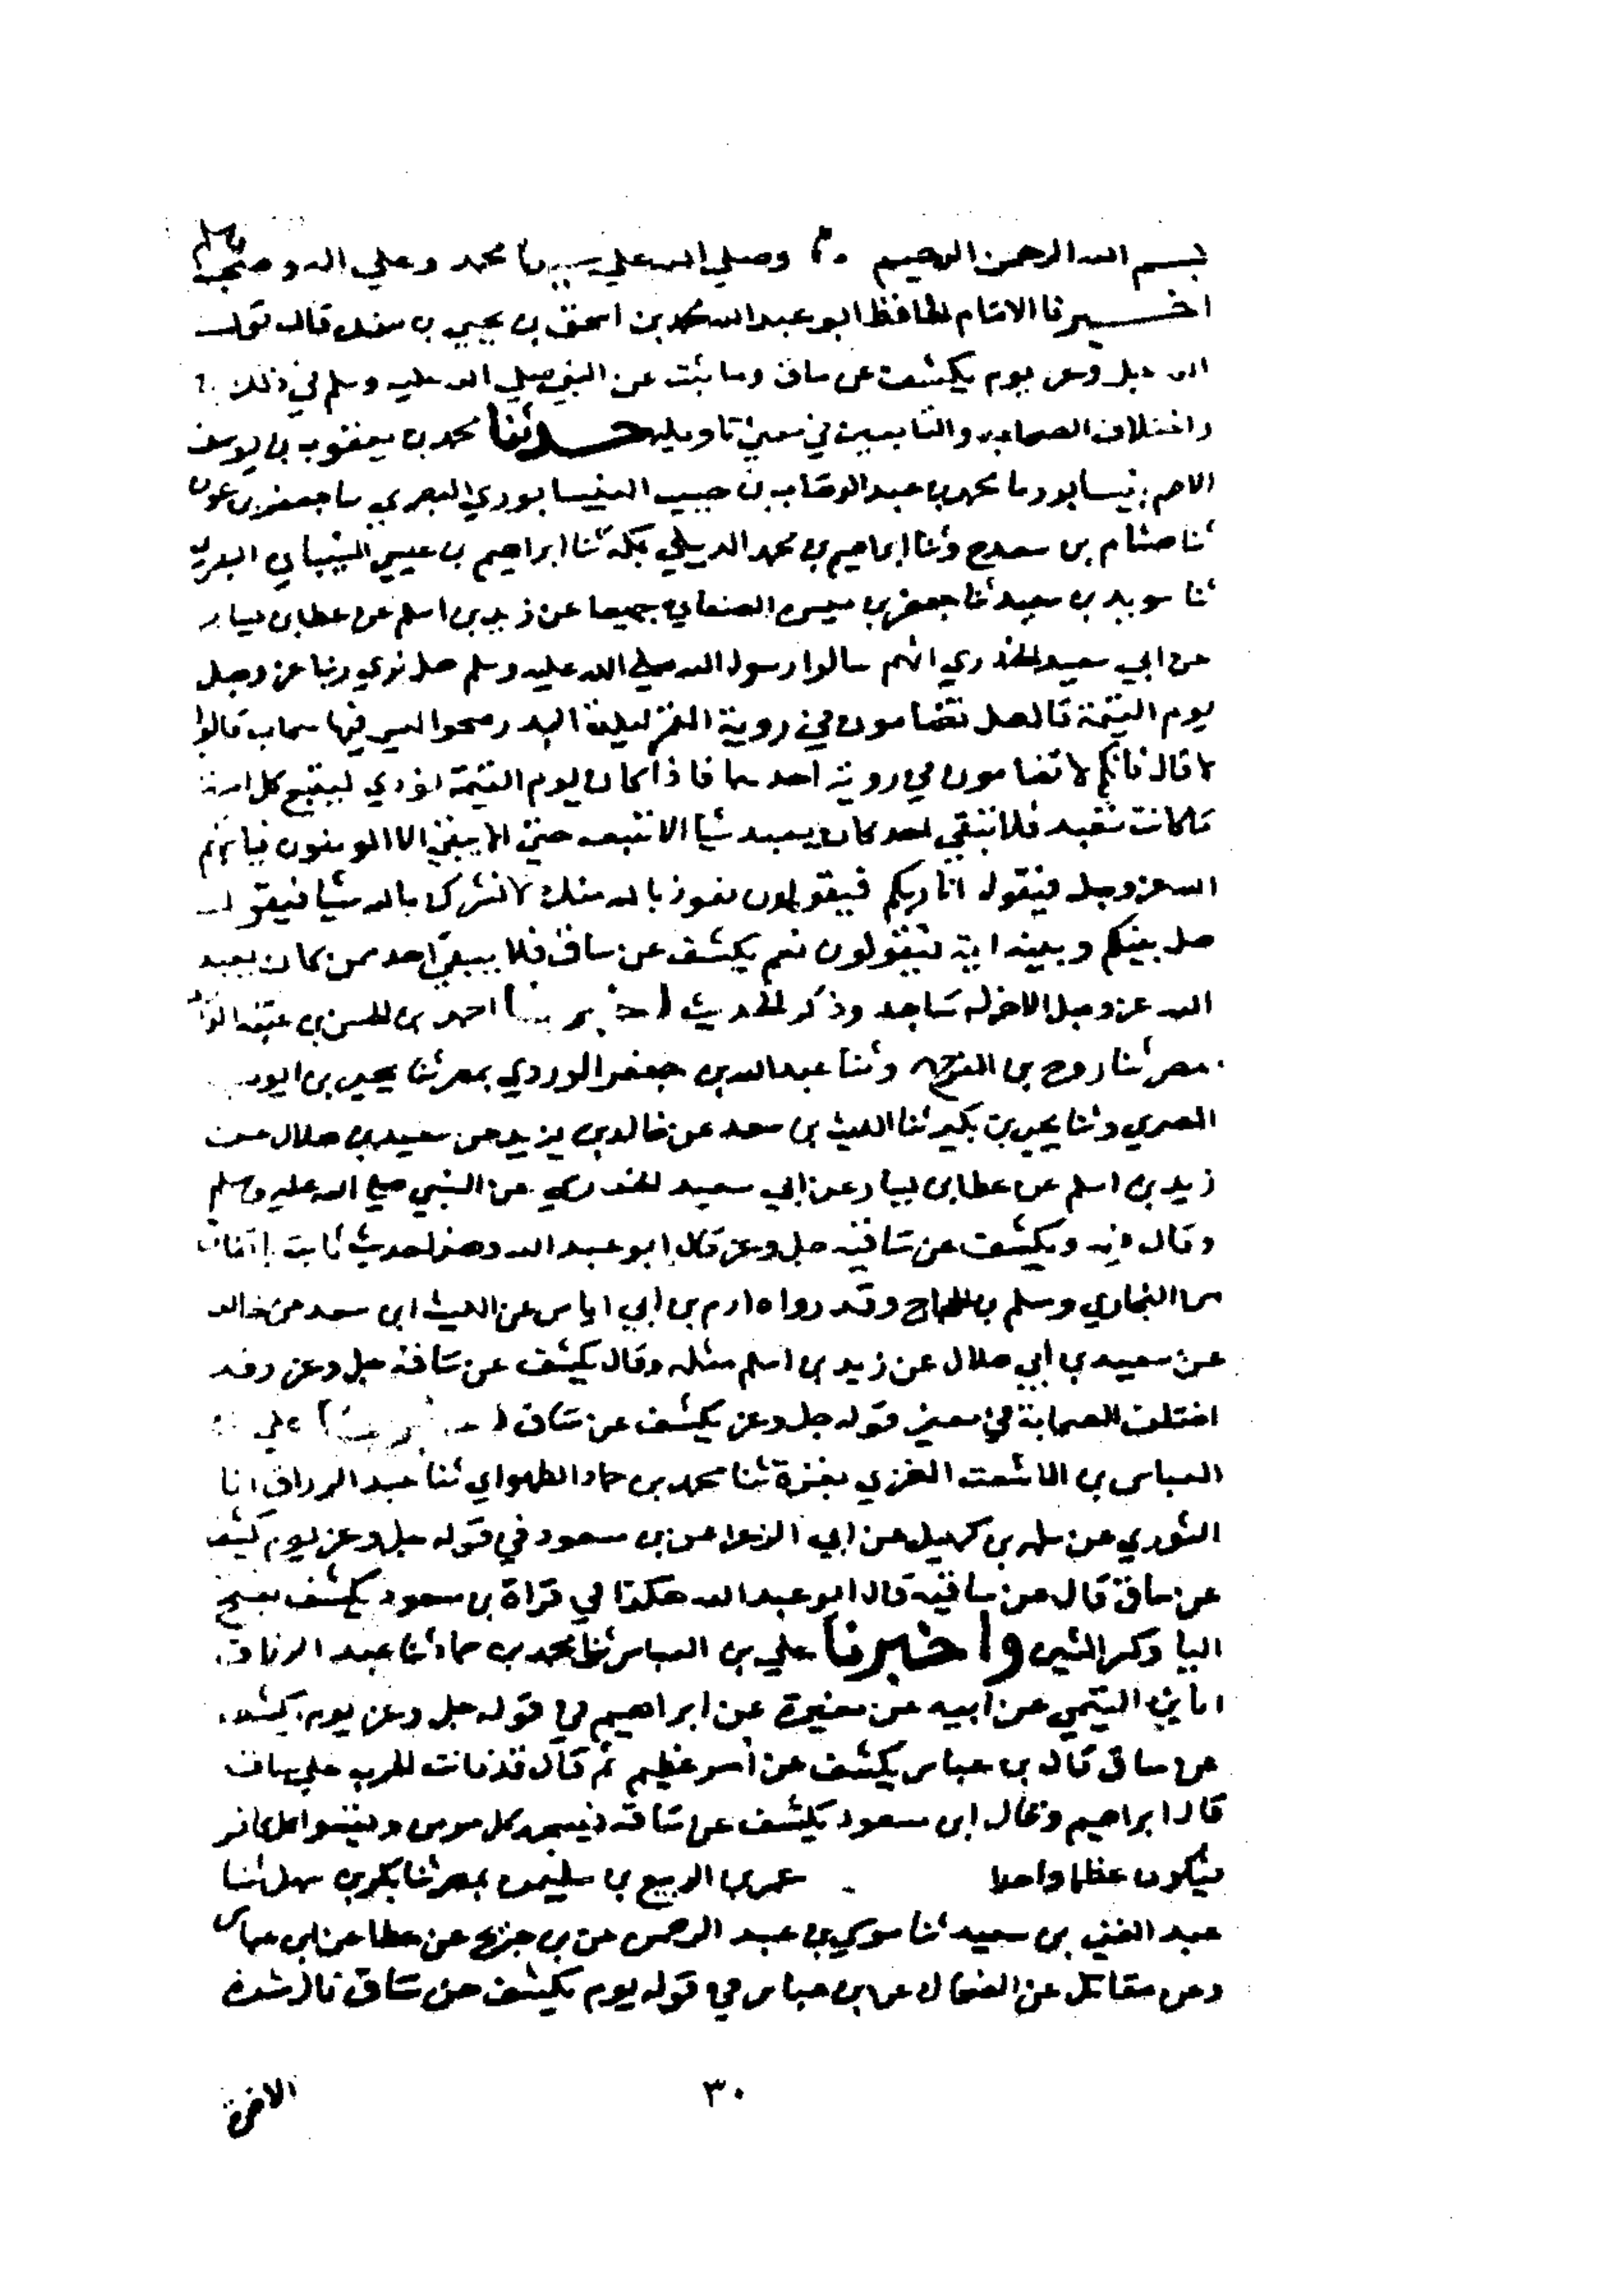 بسم الله الرحمن الرحيم وصلي الله علي سيدنا محمد وعلي اله وصحبه وسلم
اخبرنا الامام الحافظ ابو عبد الله محمد بن اسحق بن يحيي بن منده قال قول
الله جل وعز يوم يكشف عن ساق وما ثبت عن النبي صلي الله عليه وسلم في ذلك
واختلاف الصحابه والتابعين في معني تاويله حدثنا محمد بن يعقوب بن يوسف
الاصم بنيسابور ثنا محمد بن عبد الوهاب بن حبيب النيسابوري العبدي ثنا جعفر بن عون
ثنا هشام بن سعد ح وثنا ابراهيم بن محمد الديبلي بمكه ثنا ابراهيم بن عيسي الشيباني البصري
ثنا سويد بن سعيد ثنا حفص بن ميسره الصنعاني جميعا عن زيد بن اسلم عن عطا بن يسار
عن ابي سعيد الخدري انهم سالوا رسول الله صلي الله عليه وسلم هل نري ربنا عز وجل
يوم القيمة قال هل تضامون في روية القمر ليلة البدر صحوا ليس فيها سحاب قالوا
لا قال فانكم لا تضامون في روية احدهما فاذا كان يوم القيمة نودي ليتبع كل امة
ما كانت تعبد فلا يبقي احد كان يعبد شيا الا تبعه حتي لا يبقي الا المومنون فياتيهم
الله عز وجل فيقول انا ربكم فيقولون نعوذ بالله منك لا نشرك بالله شيا فيقول
هل بينكم وبينه اية فيقولون نعم يكشف عن ساق فلا يبقي احد ممن كان يعبد
الله عز وجل الا خر له ساجد وذكر الحديث اخبرنا احمد بن الحسن بن عتبه الرازي
بمصر ثنا روح بن الفرج ح وثنا عبد الله بن جعفر الوردي بمصر ثنا يحيي بن ايوب
المصري وثنا يحيي بن بكير ثنا الليث بن سعد عن خالد بن يزيد عن سعيد بن هلال عن
زيد بن اسلم عن عطا بن يسار عن ابي سعيد الخدري عن النبي صلي الله عليه وسلم
وقال فيه ويكشف عن ساقيه جل وعز قال ابو عبد الله وهذا حديث ثابت باتفاق
من البخاري ومسلم بن الحجاج وقد رواه ادم بن ابي اياس عن الليث ابن سعد عن خالد
عن سعيد بن ابي هلال عن زيد بن اسلم مثله وقال يكشف عن ساقه جل وعز وقد
اختلف الصحابة في معني قوله جل وعز يكشف عن ساق اخبرنا علي بن
العباس بن الاشعث الغزي بغزة ثنا محمد بن حماد الطهراني ثنا عبد الرزاق انا
الثوري عن سلمه بن كهيل عن ابي الزعرا عن بن مسعود في قوله جل وعز يوم يكشف
عن ساق قال عن ساقيه قال ابو عبد الله هكذا في قراة بن مسعود يكشف بفتح
اليا وكسر الشين واخبرنا علي بن العباس ثنا محمد بن حماد ثنا عبد الرزاق
انا بن التيمي عن ابيه عن مغيرة عن ابراهيم في قوله جل وعز يوم يكشف
عن ساق قال بن عباس يكشف عن امر عظيم ثم قال قد قامت الحرب علي ساق
قال ابراهيم وقال ابن مسعود يكشف عن ساقه فيسجد كل مومن ويقسوا كل كافر
فيكون عظما واحدا عمر بن الربيع بن سليمن بمصر ثنا بكر بن سهل ثنا
عبد الغني بن سعيد ثنا موسي بن عبد الرحمن عن بن جريج عن عطا عن ابن عباس
وعن مقاتل عن الضحاك عن بن عباس في قوله يوم يكشف عن ساق قال شدة
الاخرة
٣٠